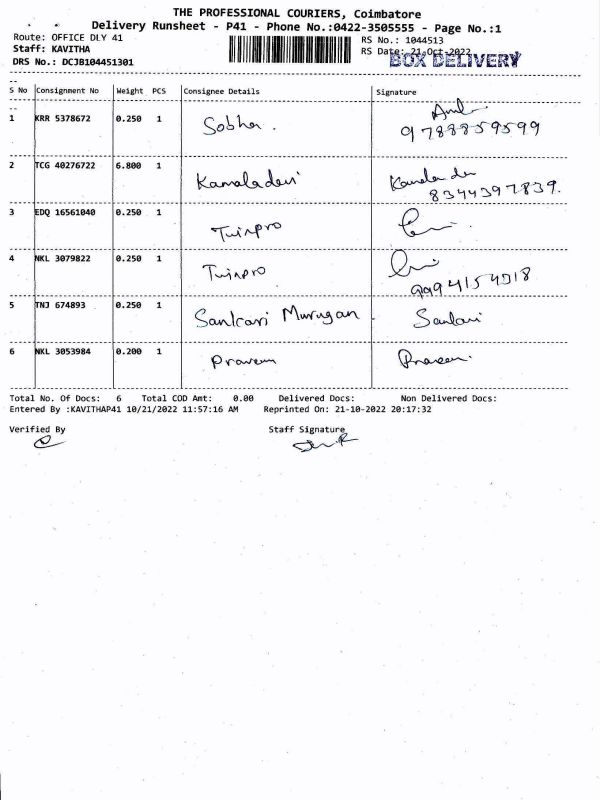 THE PROFESSIONAL COURIERS, Coimbatore
Delivery Runsheet - P41 - Phone No.:0422-3505555 - Page No.:1
Route: OFFICE DLY 41 RS No.: 1044513
Staff: KAVITHA RS Date: 21-Oct-2022
DRS No.: DCJB104451301 BOX DELIVERY
S No Consignment No Weight PCS Consignee Details Signature
1 KRR 5378672 0.250 1 Sobha.
9788859599
2 TCG 40276722 6.800 1 Kamaladevi
8344397839.
3 EDQ 16561040 0.250 1 Twinpro
4 NKL 3079822 0.250 1 Twinpro
5 TNJ 674893 0.250 1 Sankari Murugan Sankari
6 NKL 3053984 0.200 1 Praveen Praveen.
Total No. Of Docs: 6 Total COD Amt: 0.00 Delivered Docs: Non Delivered Docs:
Entered By :KAVITHAP41 10/21/2022 11:57:16 AM Reprinted On: 21-10-2022 20:17:32
Verified By Staff Signature